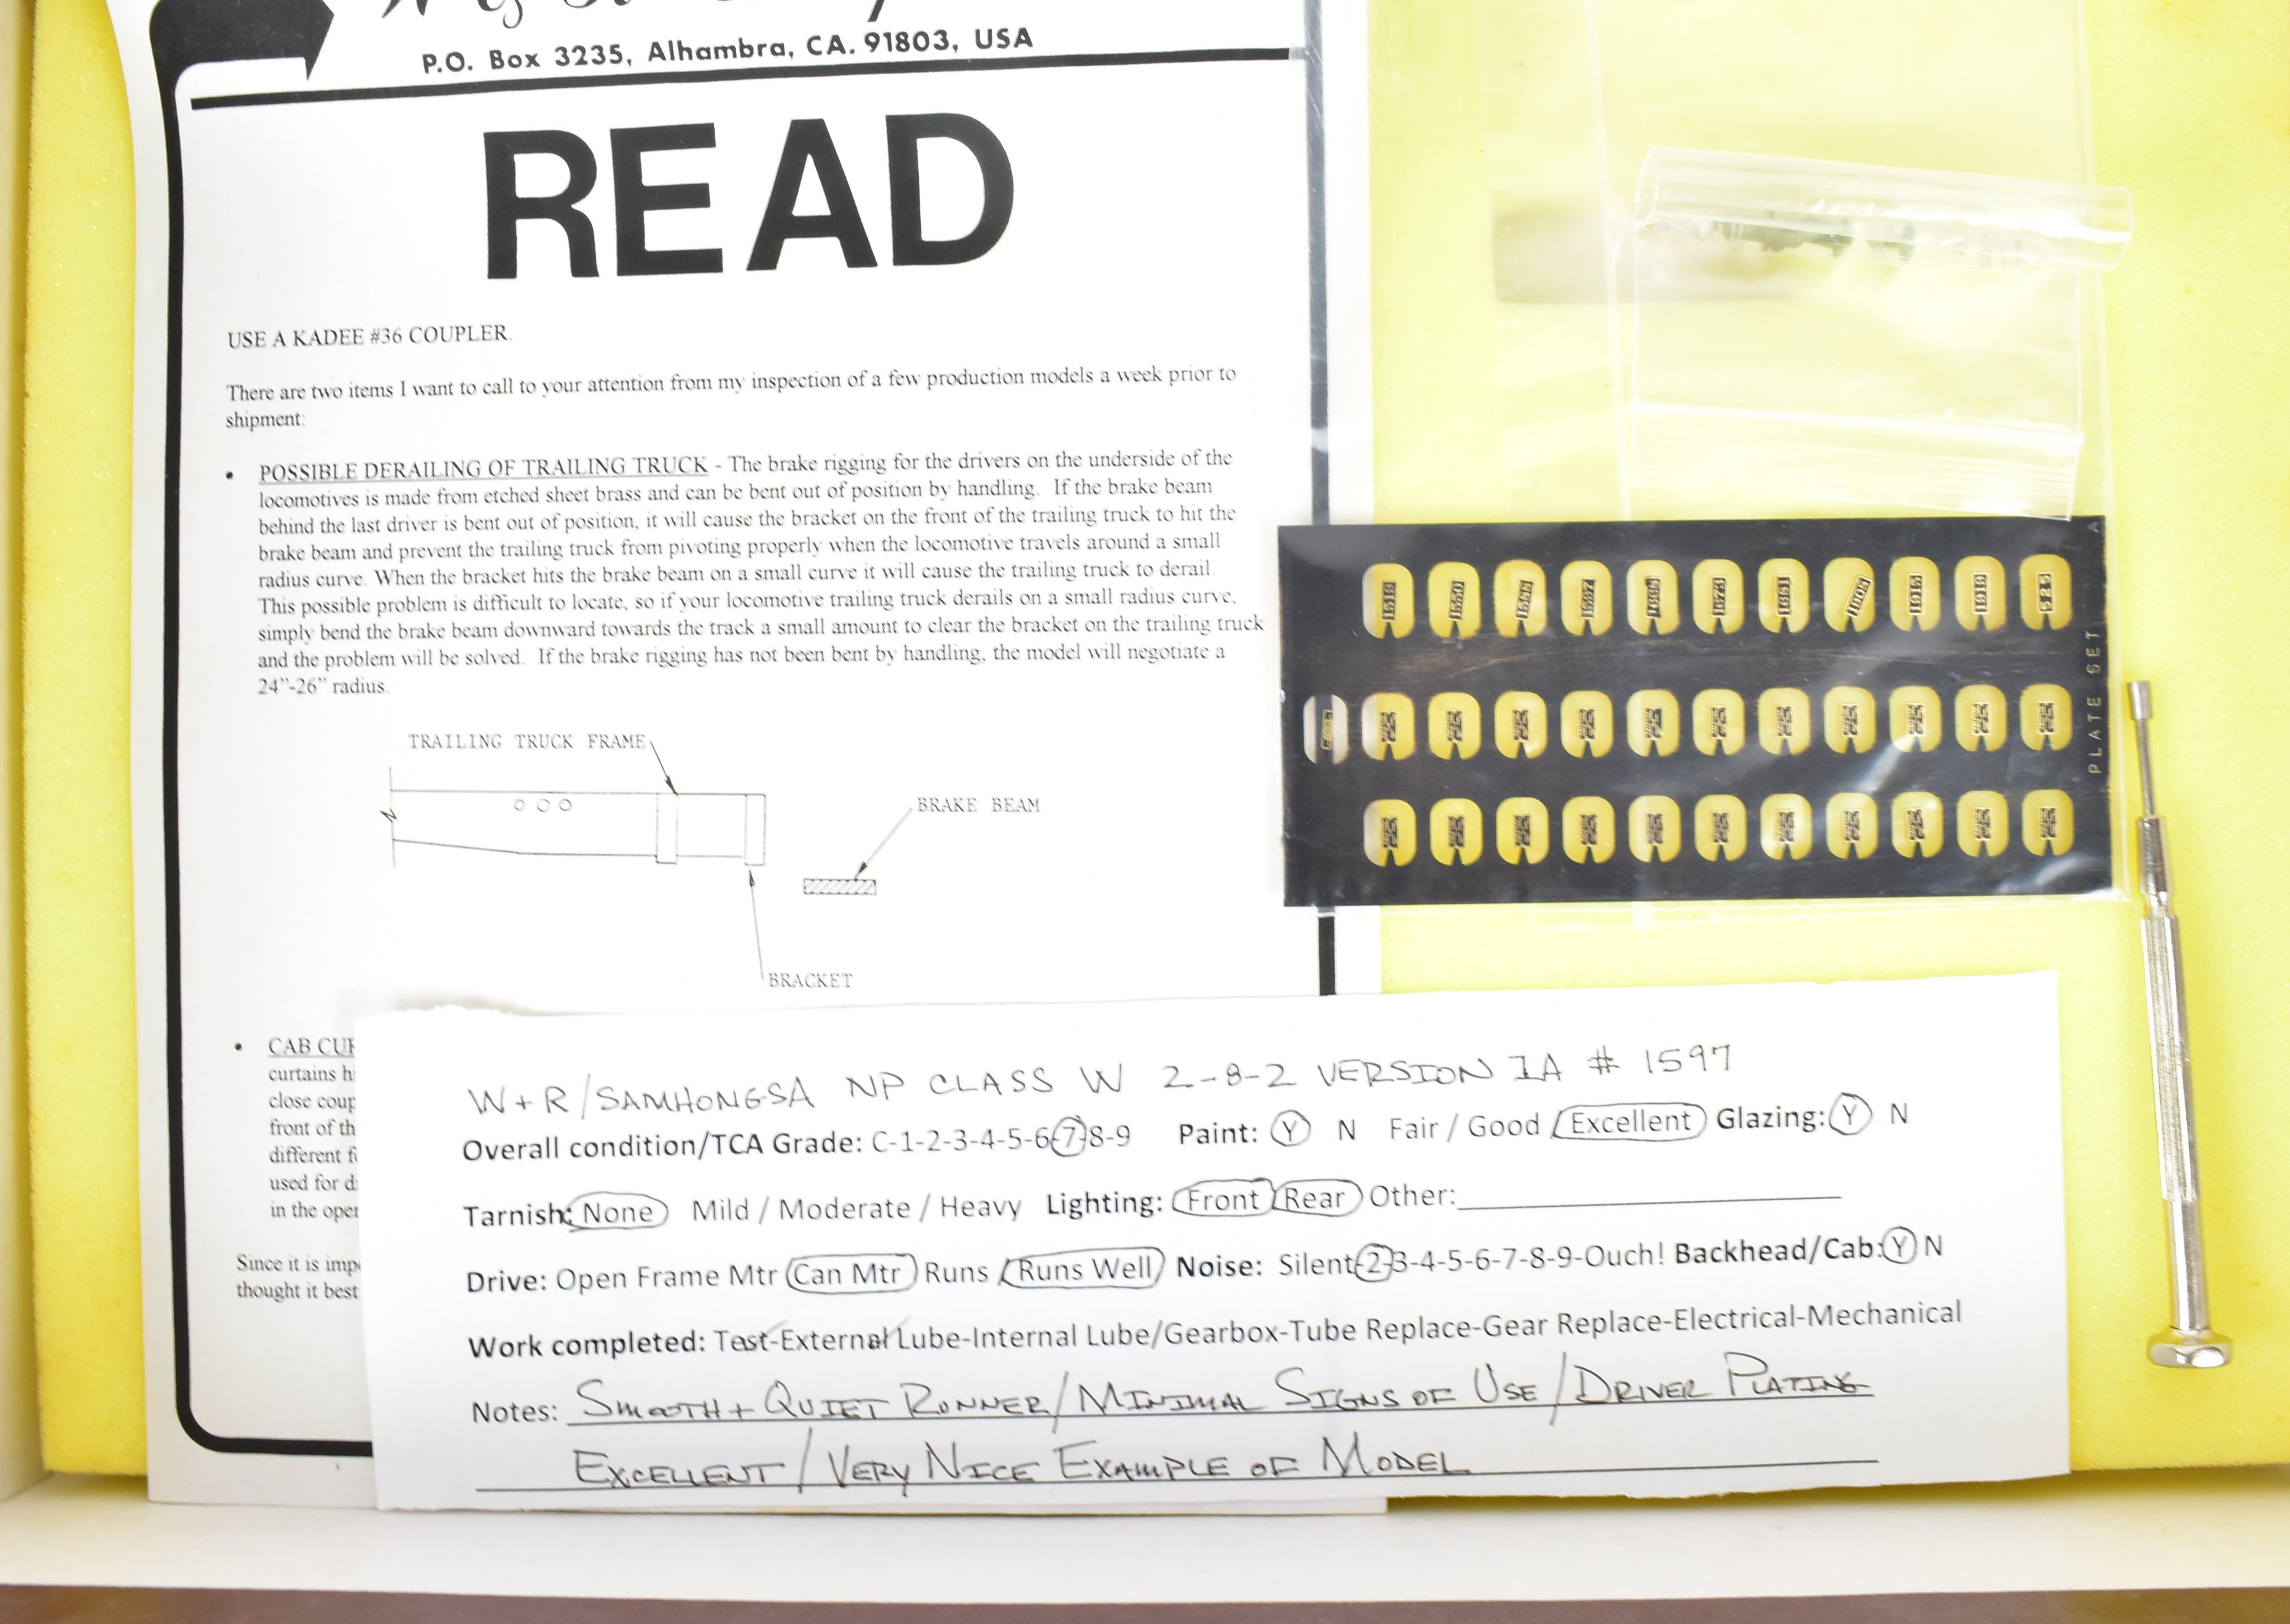 P.O. Box 3235, Alhambra, CA. 91803, USA
READ
USE A KADEE #36 COUPLER.
There are two items I want to call to your attention from my inspection of a few production models a week prior to
shipment:
• POSSIBLE DERAILING OF TRAILING TRUCK - The brake rigging for the drivers on the underside of the
locomotives is made from etched sheet brass and can be bent out of position by handling. If the brake beam
behind the last driver is bent out of position, it will cause the bracket on the front of the trailing truck to hit the
brake beam and prevent the trailing truck from pivoting properly when the locomotive travels around a small
radius curve. When the bracket hits the brake beam on a small curve it will cause the trailing truck to derail.
This possible problem is difficult to locate, so if your locomotive trailing truck derails on a small radius curve,
simply bend the brake beam downward towards the track a small amount to clear the bracket on the trailing truck
and the problem will be solved. If the brake rigging has not been bent by handling, the model will negotiate a
24"-26" radius.
TRAILING TRUCK FRAME
BRAKE BEAM
BRACKET
• CAB CUR
curtains h
close coup
front of th
different f
used for d
in the oper
Since it is imp
thought it best
PLATE SET A
W+R/SAMHONGSA NP CLASS W 2-8-2 VERSION IA # 1597
Overall condition/TCA Grade: C-1-2-3-4-5-6-7-8-9 Paint: Y N Fair / Good / Excellent Glazing: Y N
Tarnish: None Mild / Moderate / Heavy Lighting: Front / Rear Other:
Drive: Open Frame Mtr / Can Mtr Runs / Runs Well Noise: Silent-2-3-4-5-6-7-8-9-Ouch! Backhead/Cab: Y N
Work completed: Test-External Lube-Internal Lube/Gearbox-Tube Replace-Gear Replace-Electrical-Mechanical
Notes: SMOOTH + QUIET RUNNER/MINIMAL SIGNS OF USE/DRIVER PLATING
EXCELLENT/VERY NICE EXAMPLE OF MODEL